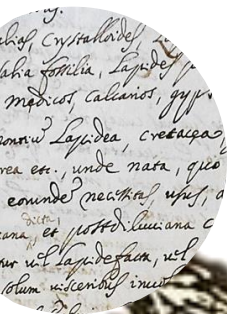 crystalloides,
alia fossilia, Lapides
medicos, calcarios, gyps
montiu Lapidea, cretacea
rea etc., unde nata, quo
eorunde necessitas, usus, a
dicta
ana et postdiluviana c
ur vel Lapidefacta, vel
solum visceribus inuol